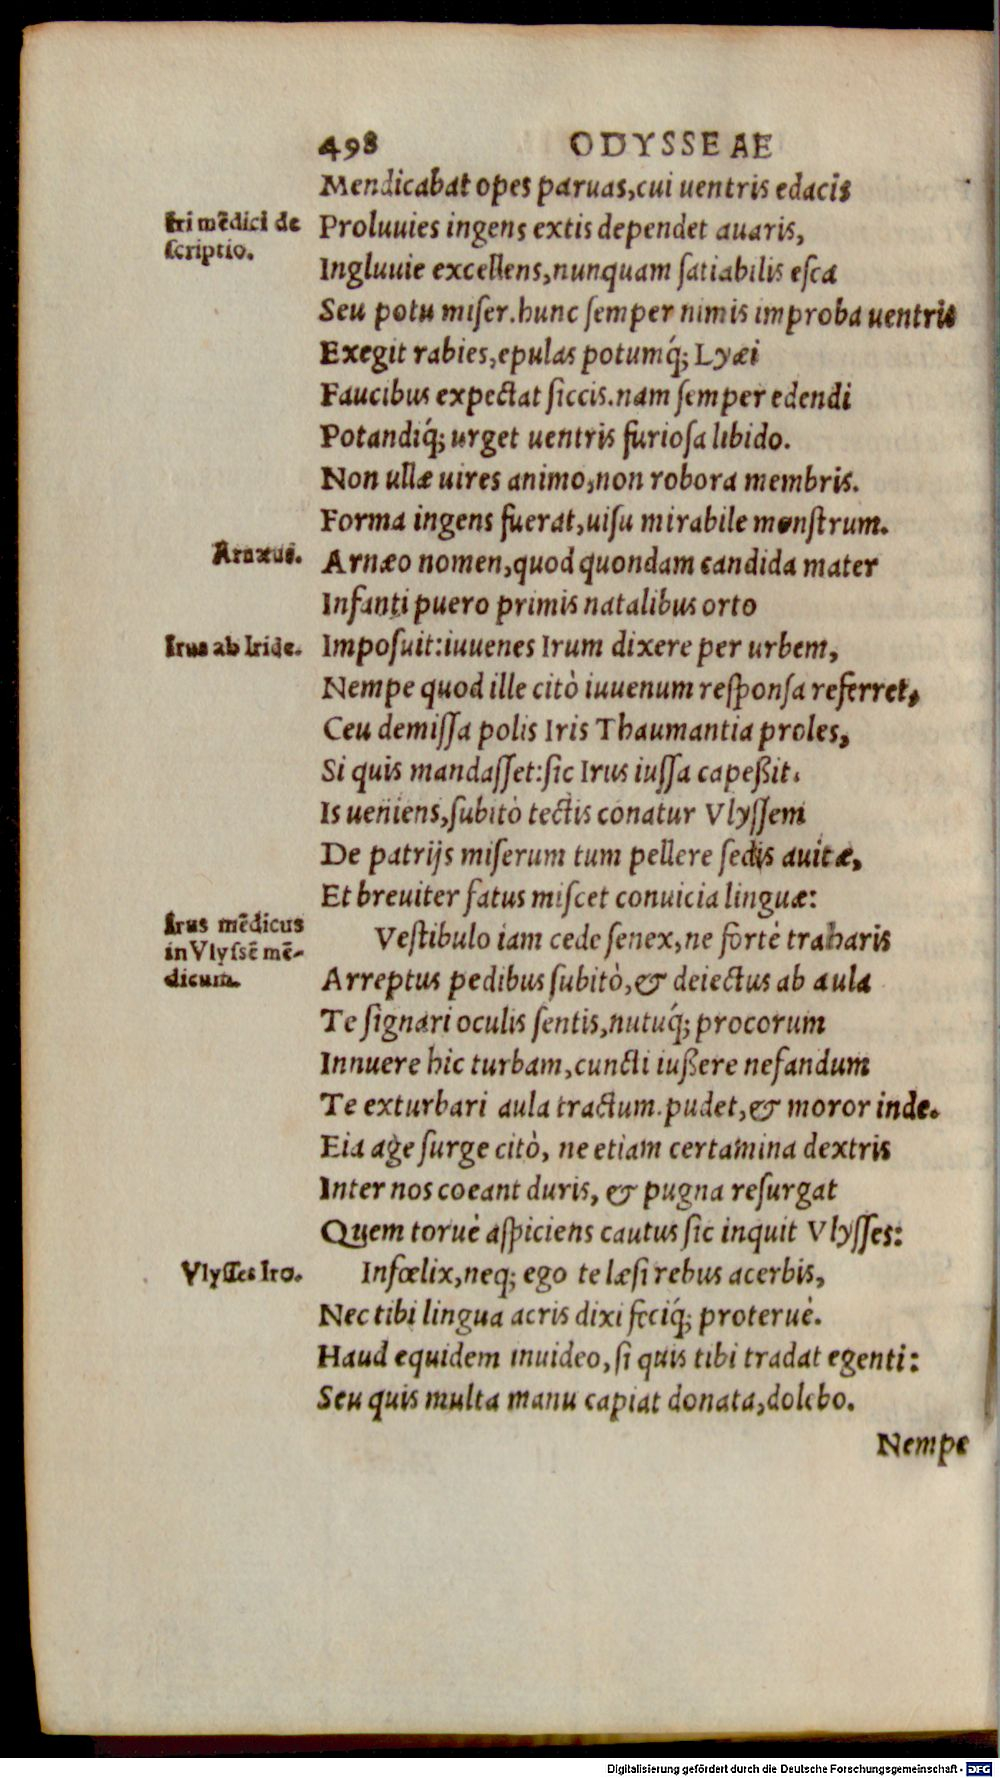 498 ODYSSEAE
Mendicabat opes paruas,cui uentris edacis
Iri mēdici de
scriptio.
Proluuies ingens extis dependet auaris,
Ingluuie excellens,nunquam ſatiabilis eſca
Seu potu miſer.hunc ſemper nimis improba uentris
Exegit rabies,epulas potumq́; Lyæi
Faucibus expectat ſiccis.nam ſemper edendi
Potandiq́; urget uentris furioſa libido.
Non ullæ uires animo,non robora membris.
Forma ingens fuerat,uiſu mirabile monſtrum.
Arnæus.
Arnæo nomen,quod quondam candida mater
Infanti puero primis natalibus orto
Irus ab Iride.
Impoſuit:iuuenes Irum dixere per urbem,
Nempe quod ille citò iuuenum reſponſa referret,
Ceu demiſſa polis Iris Thaumantia proles,
Si quis mandaſſet:ſic Irus iuſſa capeßit.
Is ueniens,ſubitò tectis conatur Vlyſſem
De patrijs miſerum tum pellere ſedis auitæ,
Et breuiter fatus miſcet conuicia linguæ:
Irus mēdicus
in Vlyſsē mē-
dicum.
Veſtibulo iam cede ſenex,ne fortè traharis
Arreptus pedibus ſubitò,& deiectus ab aula
Te ſignari oculis ſentis,nutuq́; procorum
Innuere hic turbam,cuncti iußere nefandum
Te exturbari aula tractum.pudet,& moror inde.
Eia age ſurge citò, ne etiam certamina dextris
Inter nos coeant duris, & pugna reſurgat
Quem toruè aſpiciens cautus ſic inquit Vlyſſes:
Vlyſſes Iro.
Infœlix,neq; ego te læſi rebus acerbis,
Nec tibi lingua acris dixi feciq́; proteruè.
Haud equidem inuideo,ſi quis tibi tradat egenti:
Seu quis multa manu capiat donata,dolebo.
Nempe
Digitalisierung gefördert durch die Deutsche Forschungsgemeinschaft - DFG